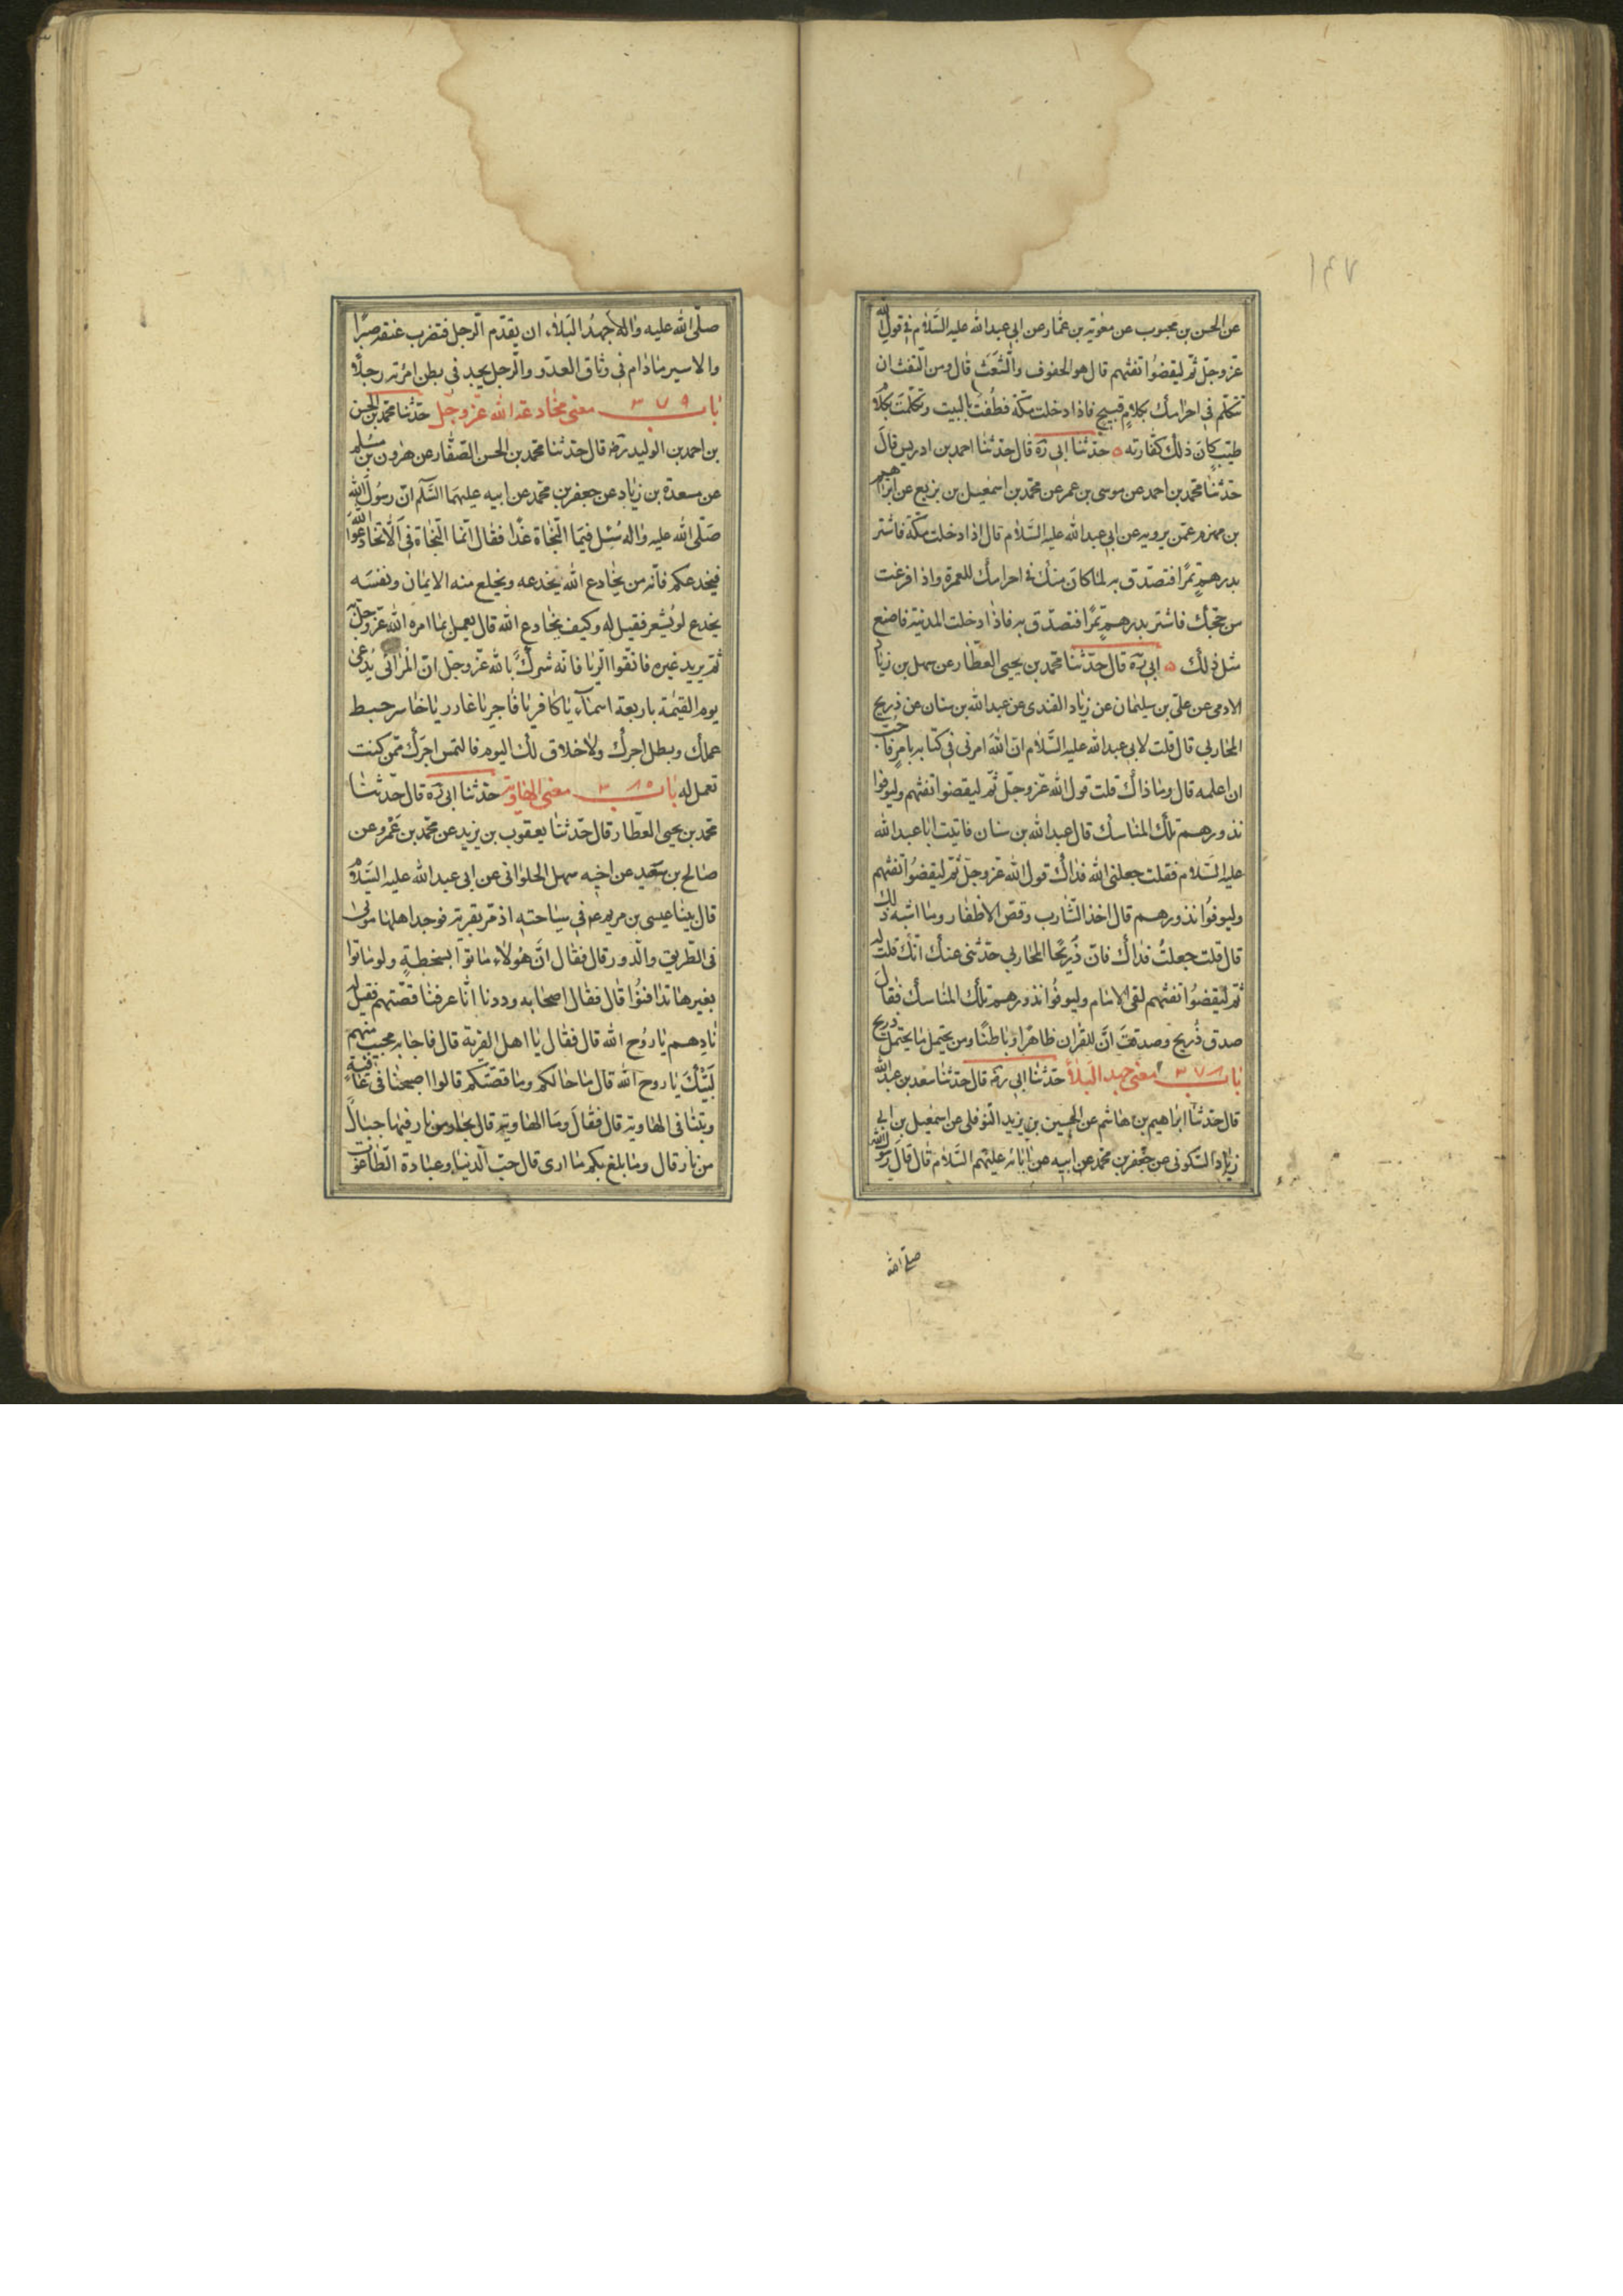 ١٤٧
عن الحسن بن محبوب عن معوية بن عمار عن ابي عبدالله عليه السلام في قول الله
عز وجل ثم ليقضوا تفثهم قال هو الحفوف والشعث قال ومن التفث ان
تتكلم في احرامك بكلام قبيح فاذا دخلت مكة فطفت بالبيت وتكلمت بكلام
طيب كان ذلك كفارته ه حدثنا ابي ره قال حدثنا احمد بن ادريس قال
حدثنا محمد بن احمد عن موسى بن عمر عن محمد بن اسمعيل بن بزيع عن ابراهيم
بن مهزم عمن يرويه عن ابي عبدالله عليه السلام قال اذا دخلت مكة فاشتر
بدرهم تمرا فتصدق به لما كان منك في احرامك للعمرة واذا فرغت
من حجك فاشتر بدرهم تمرا فتصدق به فاذا دخلت المدينة فاصنع
مثل ذلك ه ابي ره قال حدثنا محمد بن يحيى العطار عن سهل بن زياد
الادمي عن علي بن سليمان عن زياد القندي عن عبدالله بن سنان عن ذريح
المحاربي قال قلت لابي عبدالله عليه السلام ان الله امرني في كتابه بامر فاحب
ان اعلمه قال وما ذاك قلت قول الله عز وجل ثم ليقضوا تفثهم وليوفوا
نذورهم تلك المناسك قال عبدالله بن سنان فاتيت ابا عبدالله
عليه السلام فقلت جعلني الله فداك قول الله عز وجل ثم ليقضوا تفثهم
وليوفوا نذورهم قال اخذ الشارب وقص الاظفار وما اشبه ذلك
قال قلت جعلت فداك فان ذريحا المحاربي حدثني عنك انك قلت له
ثم ليقضوا تفثهم لقي الامام وليوفوا نذورهم تلك المناسك فقال
صدق ذريح وصدقت ان للقران ظاهرا وباطنا ومن يحتمل ما يحتمل ذريح
باب ٣٧٨ معنى جهد البلاء حدثنا ابي ره قال حدثنا سعد بن عبدالله
قال حدثنا ابراهيم بن هاشم عن الحسين بن يزيد النوفلي عن اسمعيل بن ابي
زياد السكوني عن جعفر بن محمد عن ابيه عن ابائه عليهم السلام قال قال رسول الله
صلى الله
صلى الله عليه واله جهد البلاء ان يقدم الرجل فتضرب عنقه صبرا
والاسير مادام في وثاق العدو والرجل يجد في بطن امرته رجلا
باب ٣٧٩ معنى مخادعة الله عز وجل حدثنا محمد بن الحسن
بن احمد بن الوليد ره قال حدثنا محمد بن الحسن الصفار عن هرون بن مسلم
عن مسعدة بن زياد عن جعفر بن محمد عن ابيه عليهما السلم ان رسول الله
صلى الله عليه واله سئل فيما النجاة غدا فقال انما النجاة في الا تخادعوا الله
فيخدعكم فانه من يخادع الله يخدعه ويخلع منه الايمان ونفسه
يخدع لو يشعر فقيل له وكيف يخادع الله قال يعمل بما امره الله عز وجل
ثم يريد غيره فاتقوا الريا فانه شرك بالله عز وجل ان المرائي يدعى
يوم القيمة باربعة اسماء يا كافر يا فاجر يا غادر يا خاسر حبط
عملك وبطل اجرك ولا خلاق لك اليوم فالتمس اجرك ممن كنت
تعمل له باب ٣٨٠ معنى الهاوية حدثنا ابي ره قال حدثنا
محمد بن يحيى العطار قال حدثنا يعقوب بن يزيد عن محمد بن عمرو عن
صالح بن سعيد عن اخيه سهل الحلواني عن ابي عبدالله عليه السلام
قال بينا عيسى بن مريم ع في سياحته اذ مر بقرية فوجد اهلها موتى
في الطريق والدور قال فقال ان هؤلاء ماتوا بسخطة ولو ماتوا
بغيرها تدافنوا قال فقال اصحابه وددنا انا عرفنا قصتهم فقيل له
نادهم يا روح الله قال فقال يا اهل القرية قال فاجابه مجيب منهم
لبيك يا روح الله قال ما حالكم وما قصتكم قالوا اصبحنا في عافية
وبتنا في الهاوية قال فقال وما الهاوية قال بحار من نار فيها جبال
من نار قال وما بلغ بكم ما ارى قال حب الدنيا وعبادة الطاغوت